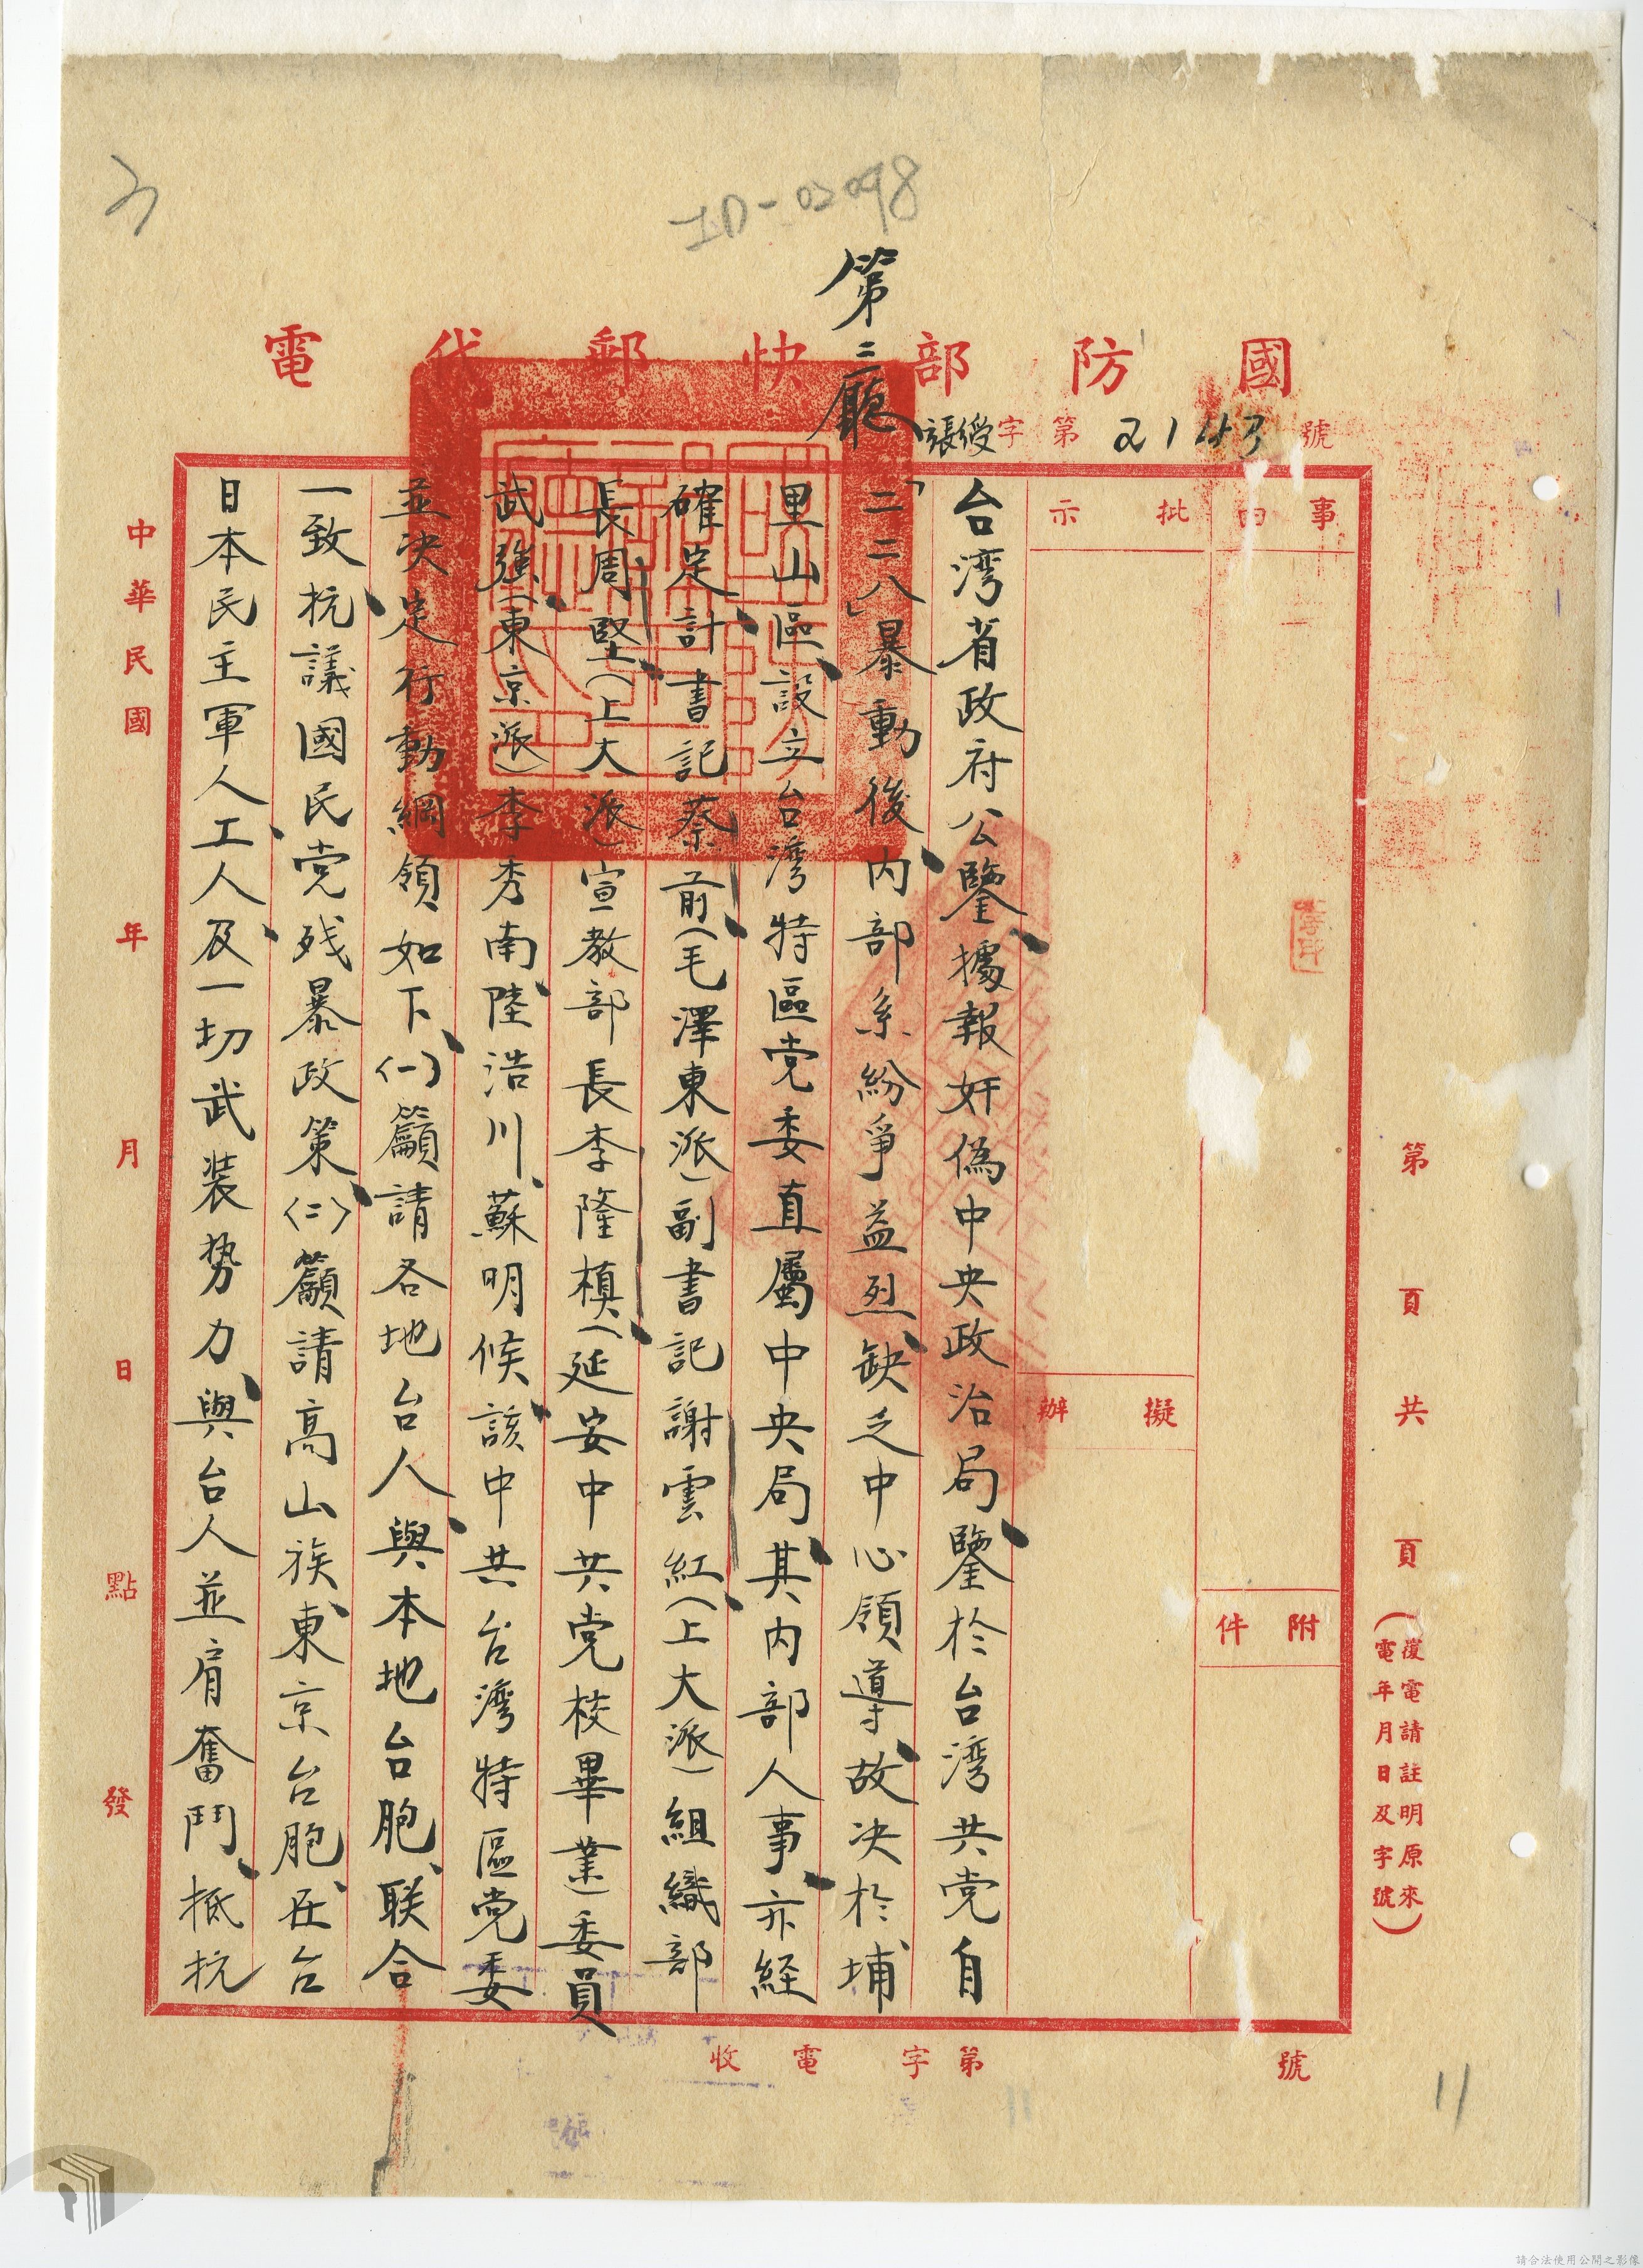 ID-02098
第二廳
國防部快郵代電
張綬字第2143號
事由
批示
擬辦
附件
台湾省政府公鑒據報奸偽中央政治局鑒於台湾共党自
「二二八」暴動後内部糸紛爭益烈缺乏中心領導故决於埔
里山區設立台湾特區党委直屬中央局其内部人事亦経
確定計書記蔡前(毛澤東派)副書記謝雲紅(上大派)組織部
長周堅(上大派)宣教部長李隆槙(延安中共党校畢業)委員
武強(東京派)李秀南陸浩川蘇明候該中共台湾特區党委
並决定行動綱領如下(一)籲請各地台人與本地台胞联合
一致抗議國民党残暴政策(二)籲請高山族東京台胞在台
日本民主軍人工人及一切武装势力與台人並肩奮鬥抵抗
中華民國 年 月 日 點 發
第 頁共 頁
(復電請註明原來
電年月日及字號)
號 第字 電收
11
請合法使用公開之影像